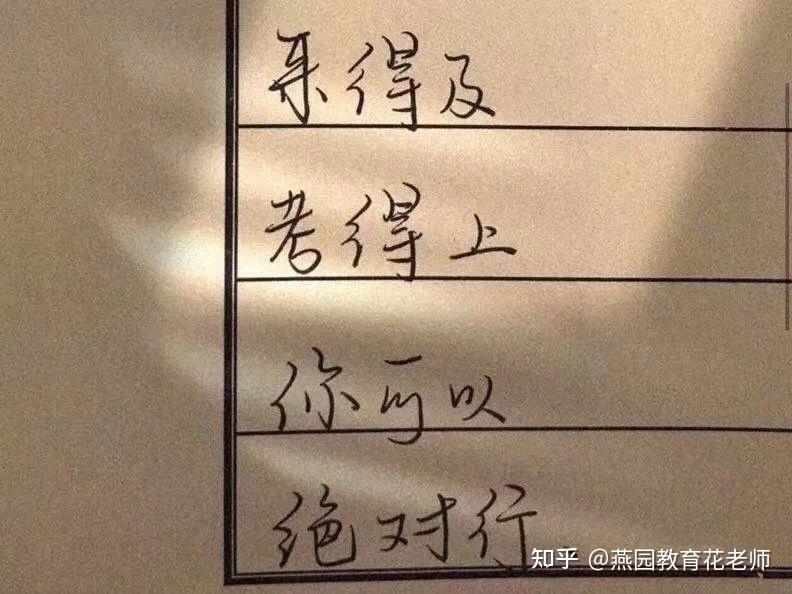 来得及
考得上
你可以
绝对行
知乎 @燕园教育花老师